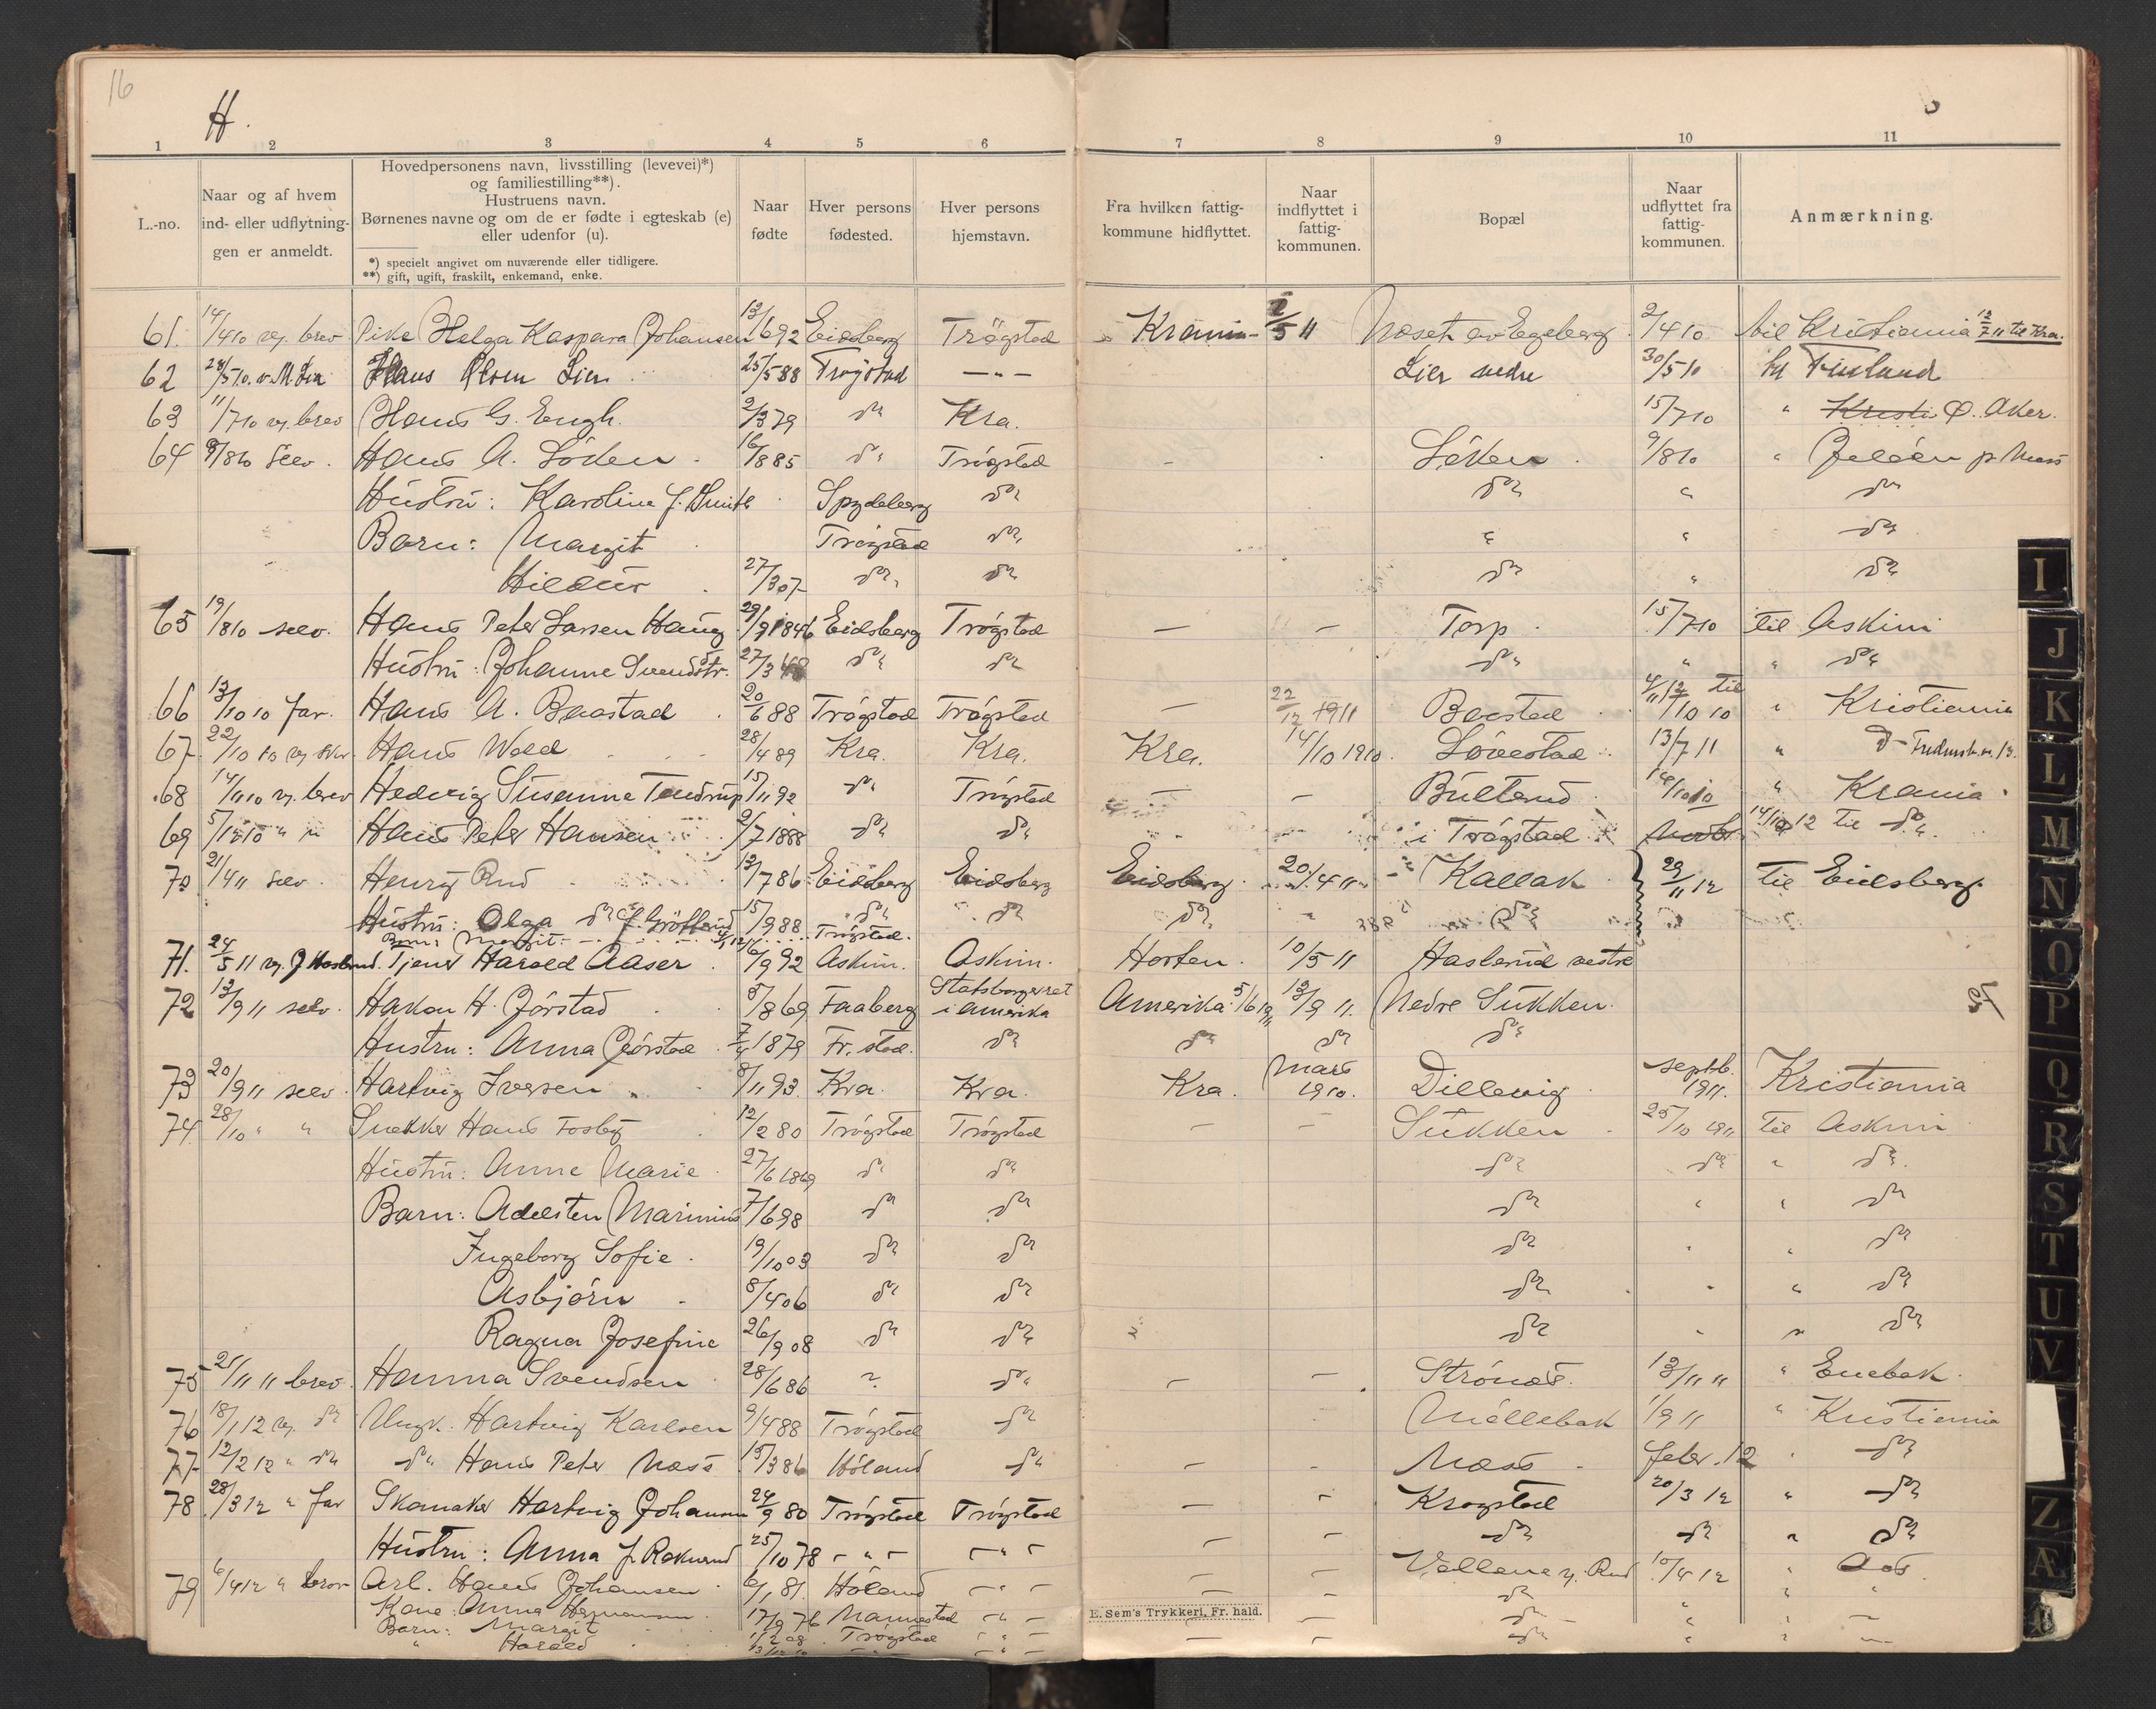 16
H.
1 2 3 4 5 6 7 8 9 10 11
L.-no.
Naar og af hvem
ind- eller udflytnin-
gen er anmeldt.
Hovedpersonens navn, livsstilling (levevei)*)
og familiestilling**).
Hustruens navn.
Børnenes navne og om de er fødte i egteskab (e)
eller udenfor (u).
*) specielt angivet om nuværende eller tidligere.
**) gift, ugift, fraskilt, enkemand, enke.
Naar
fødte
Hver persons
fødested.
Hver persons
hjemstavn.
Fra hvilken fattig-
kommune hidflyttet.
Naar
indflyttet i
fattig-
kommunen.
Bopæl
Naar
udflyttet fra
fattig-
kommunen.
Anmærkning.
61. 14/4 10 brev Pike Helga Kaspara Johansen 13/6 92 Eidsberg Trøgstad Krania 2/5 11 Næset av Egeberg 2/4 10 til Kristiania 12/7 11 til Kra.
62 28/5 10. v. M. Lier Hans Olsen Lier 25/5 88 Trøgstad — " — Lier nedre 30/5 10 til Finland
63 11/7 10 brev Hans G. Engh. 2/3 79 do Kra. 15/7 10 " Kristi Ø. Aker.
64 9/8 10 selv. Hans A. Løken 16/8 85 do Trøgstad - Løken 9/8 10 " Jeløen p. Moss
Hustru: Karoline f. Spydeberg do do " do
Barn: Margit Trøgstad do " " do
Hildur 27/3 07 do do do " do
65 19/8 10 selv. Hans Peter Larsen Haug 29/9 1846 Eidsberg Trøgstad — — Torp 15/7 10 til Askim
Hustru: Johanne Svendsdtr. 27/3 48 do do do " " do
66 13/10 10 far. Hans A. Baastad 20/6 88 Trøgstad Trøgstad — 22/12 1911 Baastad 4/11 12 til /10 10 " Kristiania
67 22/10 10 Hans Wold 28/4 89 Kra. Kra. Kra. 14/10 1910. Løvestad 13/7 11 "
68 14/11 10 brev Hedvig Susanne Tandrup 15/11 92 do Trøgstad — — Bulterud 14/10 10 " Krania
69 5/12 10 " " Hans Peter Hansen 2/7 1888 do do i Trøgstad 14/10 12 til do
70 21/4 11 selv. Henry Rud 13/7 86 Eidsberg Eidsberg Eidsberg 20/4 11 Kallak 29/11 12 til Eidsberg
Hustru: Olga do 15/9 88 do do do do
Barn: Margit Trøgstad.
71. 24/5 11 Tjener Harald Aaser 6/9 92 Askim. Askim. Horten. 10/5 11 Haslerud vestre
72 13/9 11 selv. Hakon H. Jørstad 5/8 69 Faaberg Statsborgerret i Amerika Amerika 5/6 1911 13/9 11. Nedre Sukken.
Hustru: Anna Jørstad 7/4 1879 Fr. stad. do do do do
73 20/9 11 selv. Hartvig Iversen 8/11 93. Kra. Kra. Kra. Mars 1910. Dillevig septb. 1911. Kristiania
74. 28/10 " " Snekker Hans Fosby 12/2 80 Trøgstad Trøgstad — — Sukken 25/10 1911 til Askim
Hustru: Anne Marie 27/6 1869 do do do do " do.
Barn: Adelsten Marinius 7/6 98 do do do " " do
Ingeborg Sofie. 19/10 03 do do do " " do
Asbjørn 8/4 06 do do do " " do
Ragna Josefine 26/9 08 do do do " " do
75 21/11 11 brev. Hanna Svendsen 28/6 86 ? do — — Strønæs. 13/11 11 " Enebak.
76 18/1 12 do Ungk. Hartvig Karlsen 9/4 88 Trøgstad do Møllebak 1/9 11 " Kristiania
77 12/2 12 " do do Hans Peter Næss 15/3 86 Høland do — - Næss febr. 12 " do
78 28/3 12 " far Skomaker Hartvig Johansen 24/9 80 Trøgstad Trøgstad — - Krogstad 20/3 12 " do
Hustru: Anna f. 25/10 78 - " - - " - — — do do " do
79 6/4 12 " brev Arb. Hans Johansen 6/1 81. Høland - " - — — Rud 10/4 12 " Aas
Kone: Anna Hermansen 17/9 76 - " - — do " " "
Barn: Margit 1/2 08 Trøgstad - " - — do " " —
" Harald - " - — — do " " —
E. Sem's Trykkeri, Fr. hald.
I
J
K
L
M
N
O
P
Q
R
S
T
U
V
Z
Æ